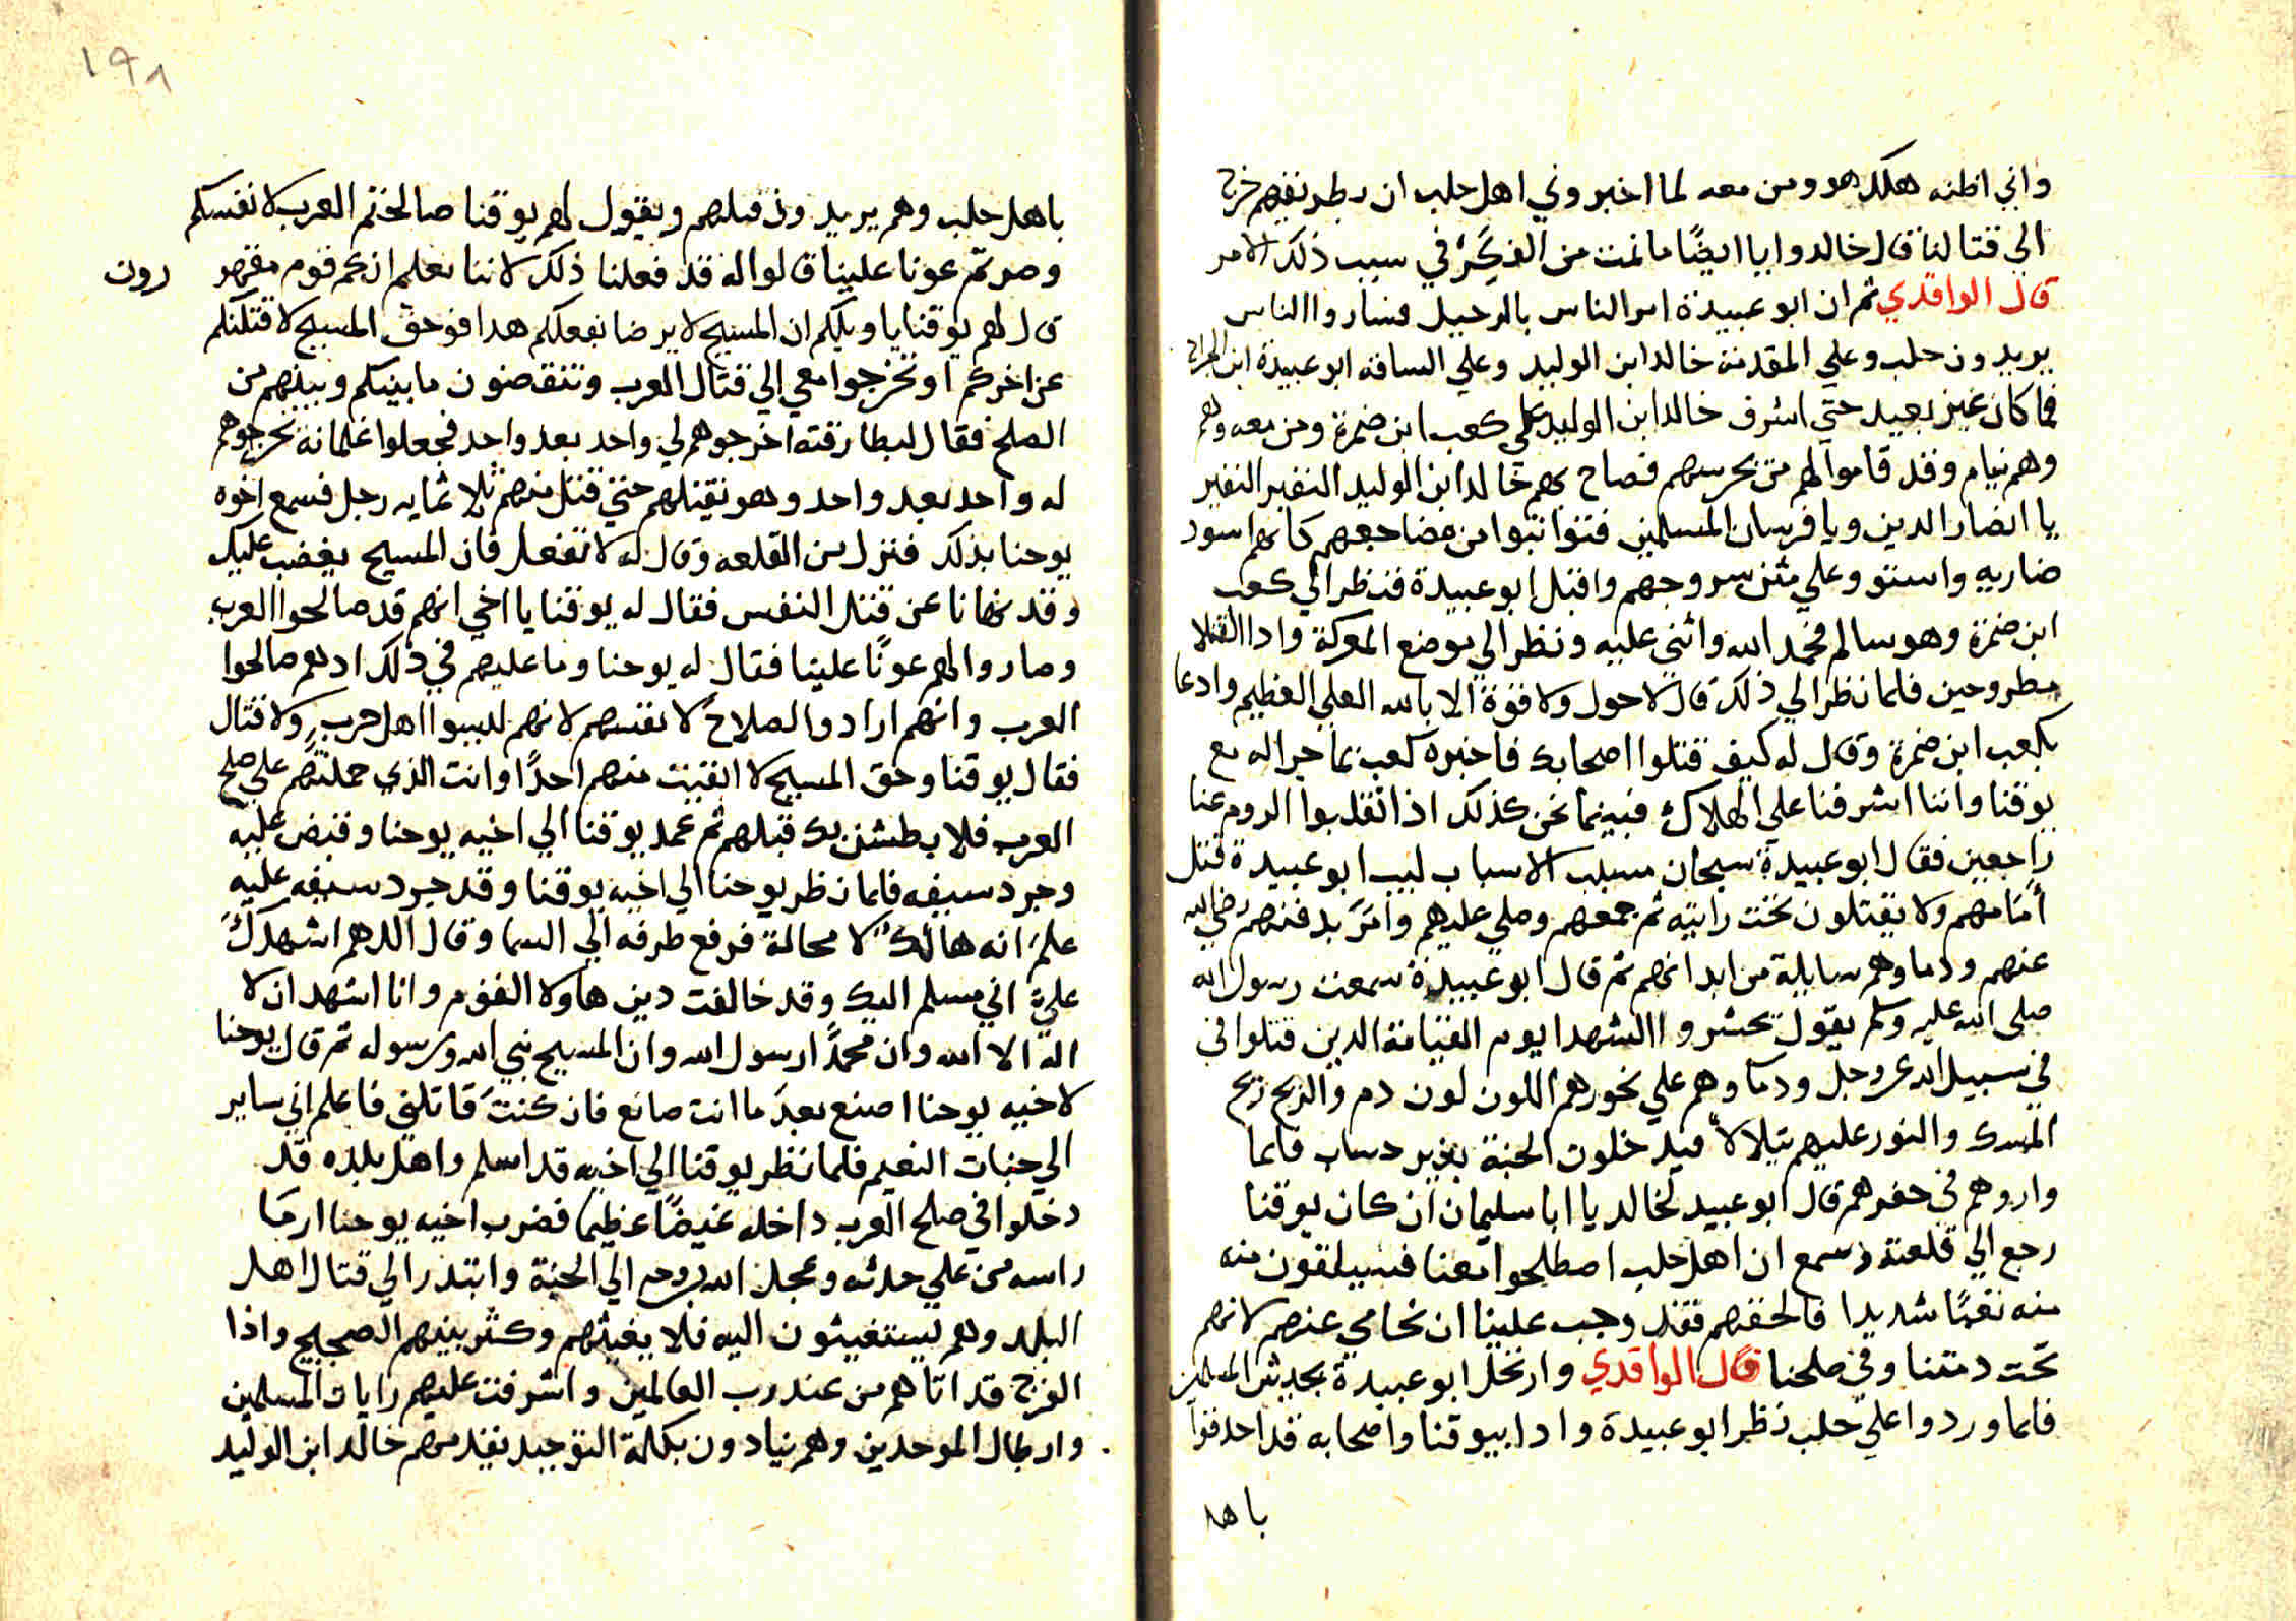 واني اظنه هلك هو ومن معه لما اخبروني اهل حلب ان بطريقهم خرج
الي قتالنا قال خالد وايا ايضًا ما نمت من الفكر في سبب ذلك الامر
قال الواقدي ثم ان ابو عبيدة امر الناس بالرحيل فساروا الناس
يريدون حلب وعلي المقدمة خالد ابن الوليد وعلي الساقه ابو عبيدة ابن الجراح
فما كان غير بعيد حتي اشرف خالد ابن الوليد علي كعب ابن ضمرة ومن معه وهم
وهم نيام وقد قاموا لهم من يحرسهم فصاح بهم خالد ابن الوليد النفير النفير
يا انصار الدين ويا فرسان المسلمين فتواثبوا من مضاجعهم كانهم اسود
ضاريه واستوو علي متن سروجهم واقبل ابو عبيدة فنظر الي كعب
ابن ضمرة وهو سالم فحمد الله واثني عليه ونظر الي موضع المعركة واذا القتلا
مطروحين فلما نظر الي ذلك قال لاحول ولا قوة الا بالله العلي العظيم وادعا
بكعب ابن ضمرة وقال له كيف قتلوا اصحابك فاخبره كعب بما جرا له مع
يوقنا واننا اشرفنا علي الهلاك فبينما نحن كذلك اذا انقلبوا الروم عنا
راجعين فقال ابو عبيدة سبحان مسبب الاسباب ليب ابو عبيدة قتل
أمامهم ولا يقتلون تحت رايته ثم جمعهم وصلي عليهم وأمَرَ بدفنهم رضي الله
عنهم ودماوهم سايلة من ابدانهم ثم قال ابو عبيدة سمعت رسول الله
صلى الله عليه وسلم يقول تحشروا الشهدا يوم القيامة الدين قتلوا في
في سبيل الله عز وجل ودماوهم علي نحورهم اللون لون دم والريح ريح
المسك والنور عليهم يتلالا فيدخلون الجنة بغير حساب فلما
واروهم في حفرهم قال ابو عبيد لخالد يا ابا سليمان ان كان يوقنا
رجع الي قلعته وسمع ان اهل حلب اصطلحوا معنا فسيلقون منه
منه تعبًا شديدا فالحقهم فقد وجب علينا ان نحامي عنهم لانهم
تحت دمتنا وفي صلحنا قال الواقدي وارتحل ابو عبيدة بجيش المسلمين
فلما وردوا علي حلب نظر ابو عبيدة وادا بيوقنا واصحابه قد احدقوا
باهل
١٩٨
باهل حلب وهم يريدون قتلهم ويقول لهم يوقنا صالحتم العرب لانفسكم
وصرتم عونا علينا قالوا له قد فعلنا ذلك لاننا نعلم انهم قوم منصورون
قال لهم يوقنا يا ويلكم ان المسيح لا يرضا بفعلكم هدا فوحق المسيح لاقتلنكم
عن اخركم او تخرجوا معي الي قتال العرب وتنقصون ما بينكم وبينهم من
الصلح فقال لبطارقته اخرجوهم لي واحد بعد واحد فجعلوا غلمانه يخرجوهم
له واحد بعد واحد وهو يقتلهم حتي قتل منهم ثلاثمايه رجل فسمع اخوه
يوحنا بذلك فنزل من القلعه وقال له لا تفعل فان المسيح يغضب عليك
وقد نهانا عن قتل النفس فقال له يوقنا يا اخي انهم قد صالحوا العرب
وصاروا لهم عونًا علينا فقال له يوحنا وما عليهم في ذلك ادهم صالحوا
العرب وانهم ارادوا الصلاح لانفسهم لانهم ليسوا اهل حرب ولا قتال
فقال يوقنا وحق المسيح لا ابقيت منهم احدًا وانت الذي حملتهم علي صلح
العرب فلا بطشن بك قبلهم ثم عمد يوقنا الي اخيه يوحنا وقبض عليه
وجرد سيفه فلما نظر يوحنا الي اخيه يوقنا وقد جرد سيفه عليه
علم انه هالك لا محالة فرفع طرفه الي السما وقال اللهم اشهدك
علي اني مسلم اليك وقد خالفت دين هاولا القوم وانا اشهد ان لا
اله الا الله وان محمدًا رسول الله وان المسيح نبي الله ورسوله ثم قال يوحنا
لاخيه يوحنا اصنع بعد ما انت صانع فان كنت قاتلني فاعلم اني ساير
الي جنات النعيم فلما نظر يوقنا الي اخيه قد اسلم واهل بلده قد
دخلوا في صلح العرب داخله غيضًا عظيما فضرب اخيه يوحنا ارما
راسه من علي جثته وعجل الله بروحه الي الجنة وابتدر الي قتال اهل
البلد وهم يستغيثون اليه فلا يغيثهم وكثر بينهم الضجيج واذا
الفرج قد اتاهم من عند رب العالمين واشرفت عليهم رايات المسلمين
وابطال الموحدين وهم ينادون بكلمة التوحيد يقدمهم خالد ابن الوليد